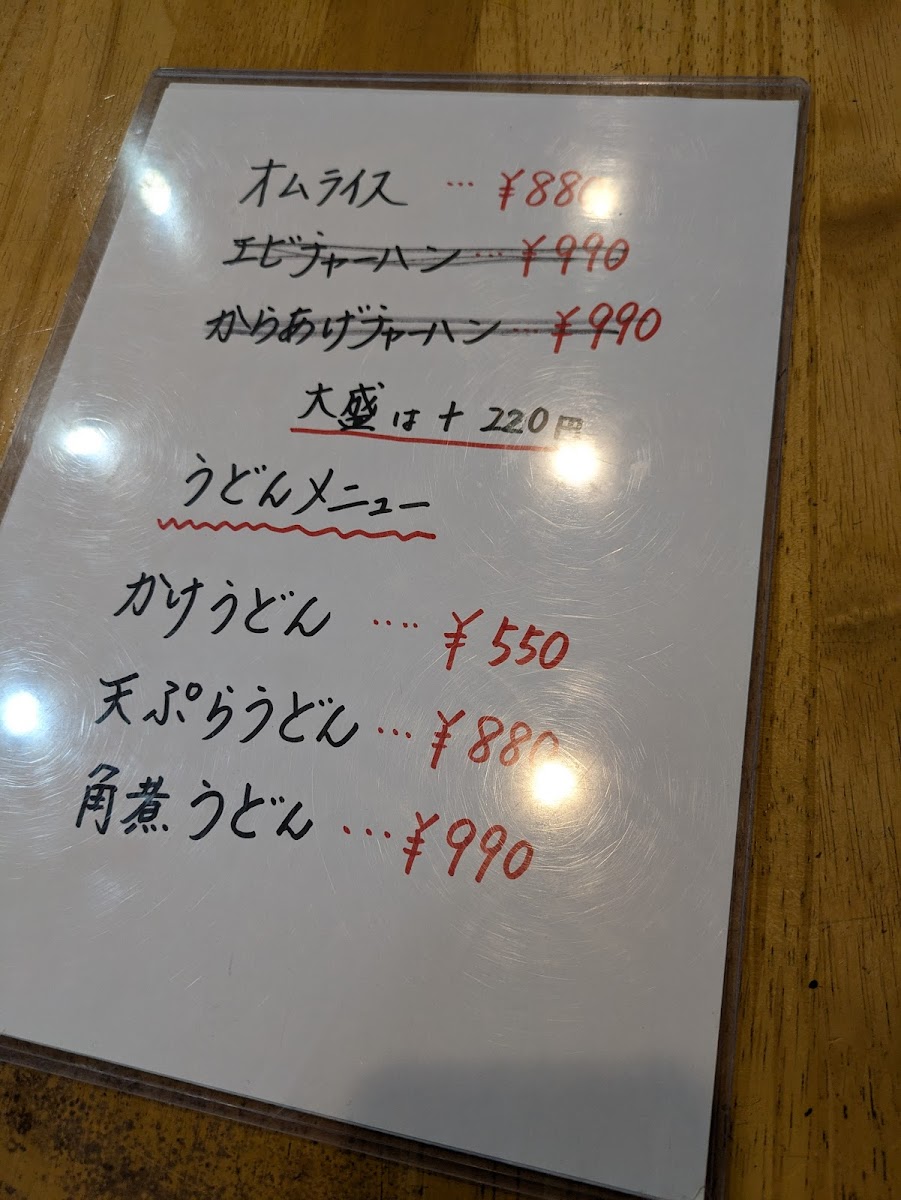 オムライス … ¥880
エビチャーハン … ¥990
からあげチャーハン … ¥990
大盛は + 220円
うどんメニュー
かけうどん …. ¥550
天ぷらうどん … ¥880
角煮うどん … ¥990